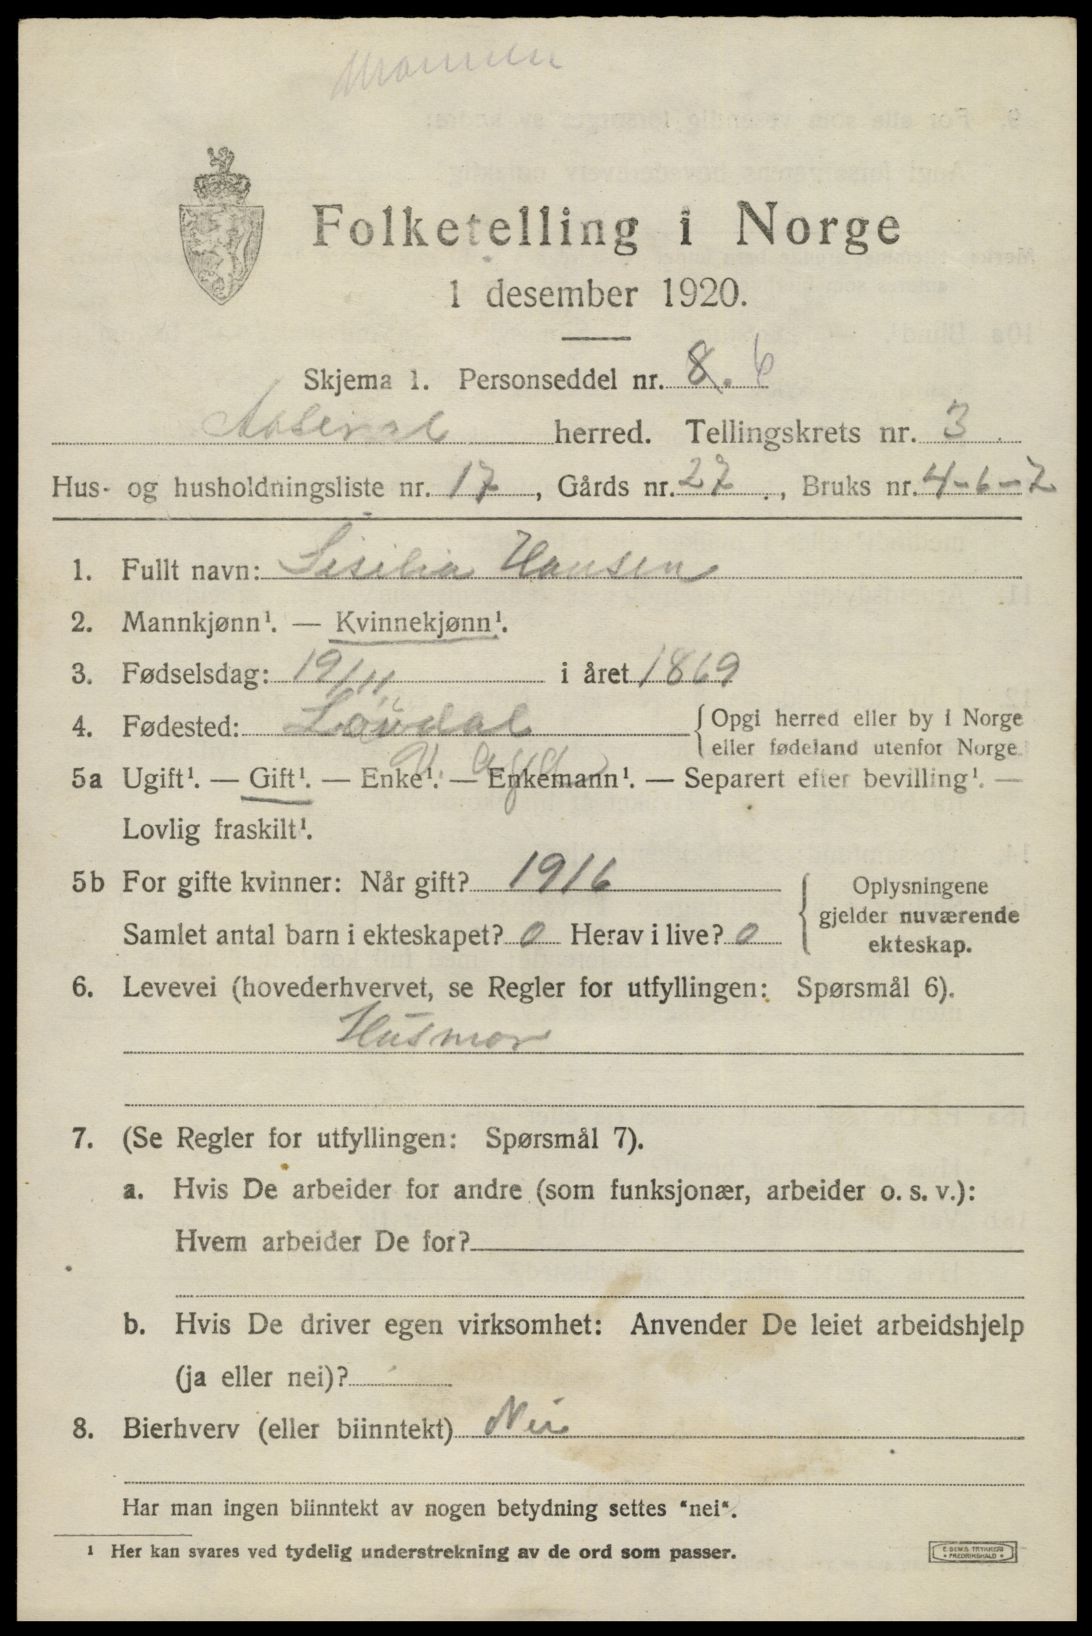 Folketelling i Norge
1 desember 1920.
Skjema 1. Personseddel nr. 8. 6
Aaseral herred. Tellingskrets nr. 3.
Hus- og husholdningsliste nr. 17, Gårds nr. 27, Bruks nr. 4-6-7
1. Fullt navn: Sisilia Hansen
2. Mannkjønn¹. — Kvinnekjønn¹.
3. Fødselsdag: 19/11 i året 1869
4. Fødested: Løvdal {Opgi herred eller by i Norge
eller fødeland utenfor Norge
V. Agd
5a Ugift¹. — Gift¹. — Enke¹. — Enkemann¹. — Separert efter bevilling¹. —
Lovlig fraskilt¹.
5b For gifte kvinner: Når gift? 1916
Samlet antal barn i ekteskapet? 0 Herav i live? 0
{Oplysningene
gjelder nuværende
ekteskap.
6. Levevei (hovederhvervet, se Regler for utfyllingen: Spørsmål 6).
Husmor
7. (Se Regler for utfyllingen: Spørsmål 7).
a. Hvis De arbeider for andre (som funksjonær, arbeider o. s. v.):
Hvem arbeider De for?
b. Hvis De driver egen virksomhet: Anvender De leiet arbeidshjelp
(ja eller nei)?
8. Bierhverv (eller biinntekt) Nei
Har man ingen biinntekt av nogen betydning settes "nei".
¹ Her kan svares ved tydelig understrekning av de ord som passer.
E. SEMS TRYKKERI
• FREDRIKSHALD •